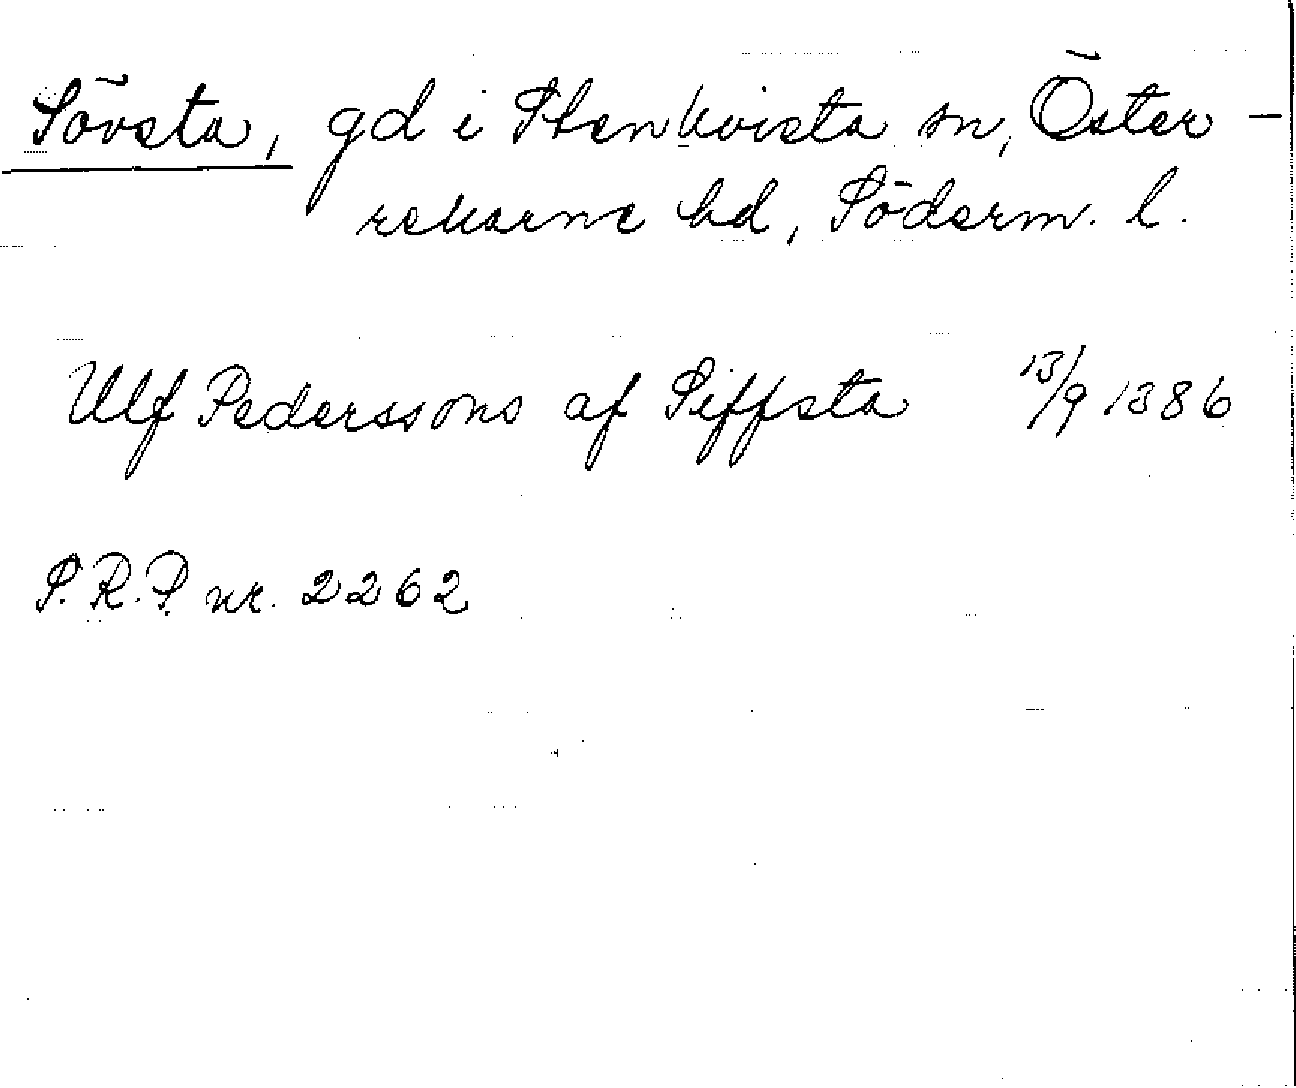 Sövsta, gd i Stenkvista sn, Öster-
rekarne hd, Söderm. l.
Ulf Pederssons af Siffsta 13/9 1386
S.R.P. nr. 2262